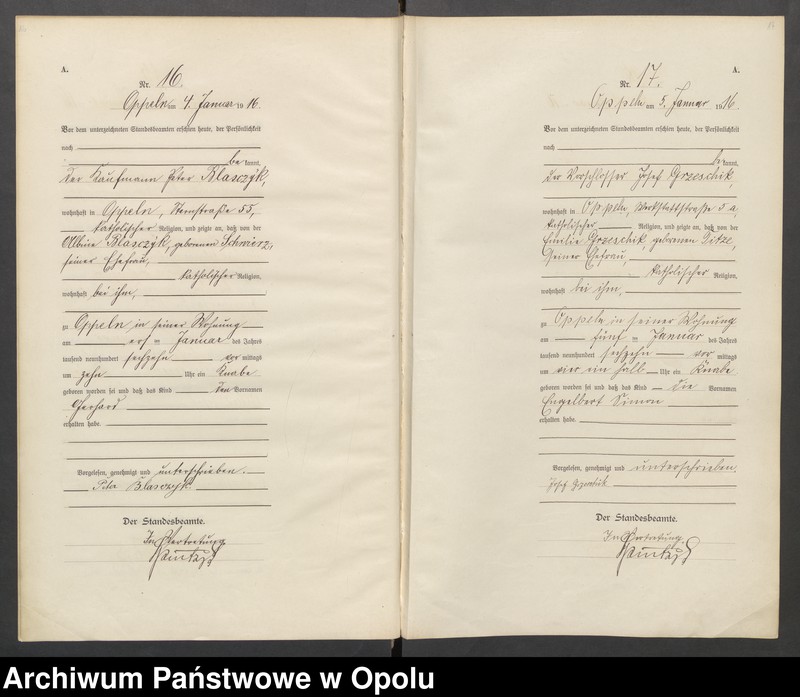 A.
Nr. 16.
Oppeln am 4. Januar 1916.
Vor dem unterzeichneten Standesbeamten erschien heute, der Persönlichkeit
nach
be kannt,
der Kaufmann Peter Blasczÿk,
wohnhaft in Oppeln, Sternstraße 55,
katholischer Religion, und zeigte an, daß von der
Albine Blasczÿk, geborenen Schwierz,
seiner Ehefrau,
katholischer Religion,
wohnhaft bei ihm,
zu Oppeln in seiner Wohnung
am ersten Januar des Jahres
tausend neunhundert sechzehn vor mittags
um zehn Uhr ein Knabe
geboren worden sei und daß das Kind den Vornamen
Gerhard
erhalten habe.
Vorgelesen, genehmigt und unterschrieben.
Peter Blasczyk
Der Standesbeamte.
In Vertretung.
A.
Nr. 17.
Oppeln am 5. Januar 1916.
Vor dem unterzeichneten Standesbeamten erschien heute, der Persönlichkeit
nach
be kannt,
der Vorschlosser Josef Grzeschik,
wohnhaft in Oppeln, Werkstattstraße 5 a,
katholischer Religion, und zeigte an, daß von der
Emilie Grzeschik, geborenen Titze,
seiner Ehefrau,
katholischer Religion,
wohnhaft bei ihm,
zu Oppeln in seiner Wohnung
am fünften Januar des Jahres
tausend neunhundert sechzehn vor mittags
um vier ein halb Uhr ein Knabe
geboren worden sei und daß das Kind die Vornamen
Engelbert Simon
erhalten habe.
Vorgelesen, genehmigt und unterschrieben.
Josef Grzeschik
Der Standesbeamte.
In Vertretung.
Archiwum Państwowe w Opolu